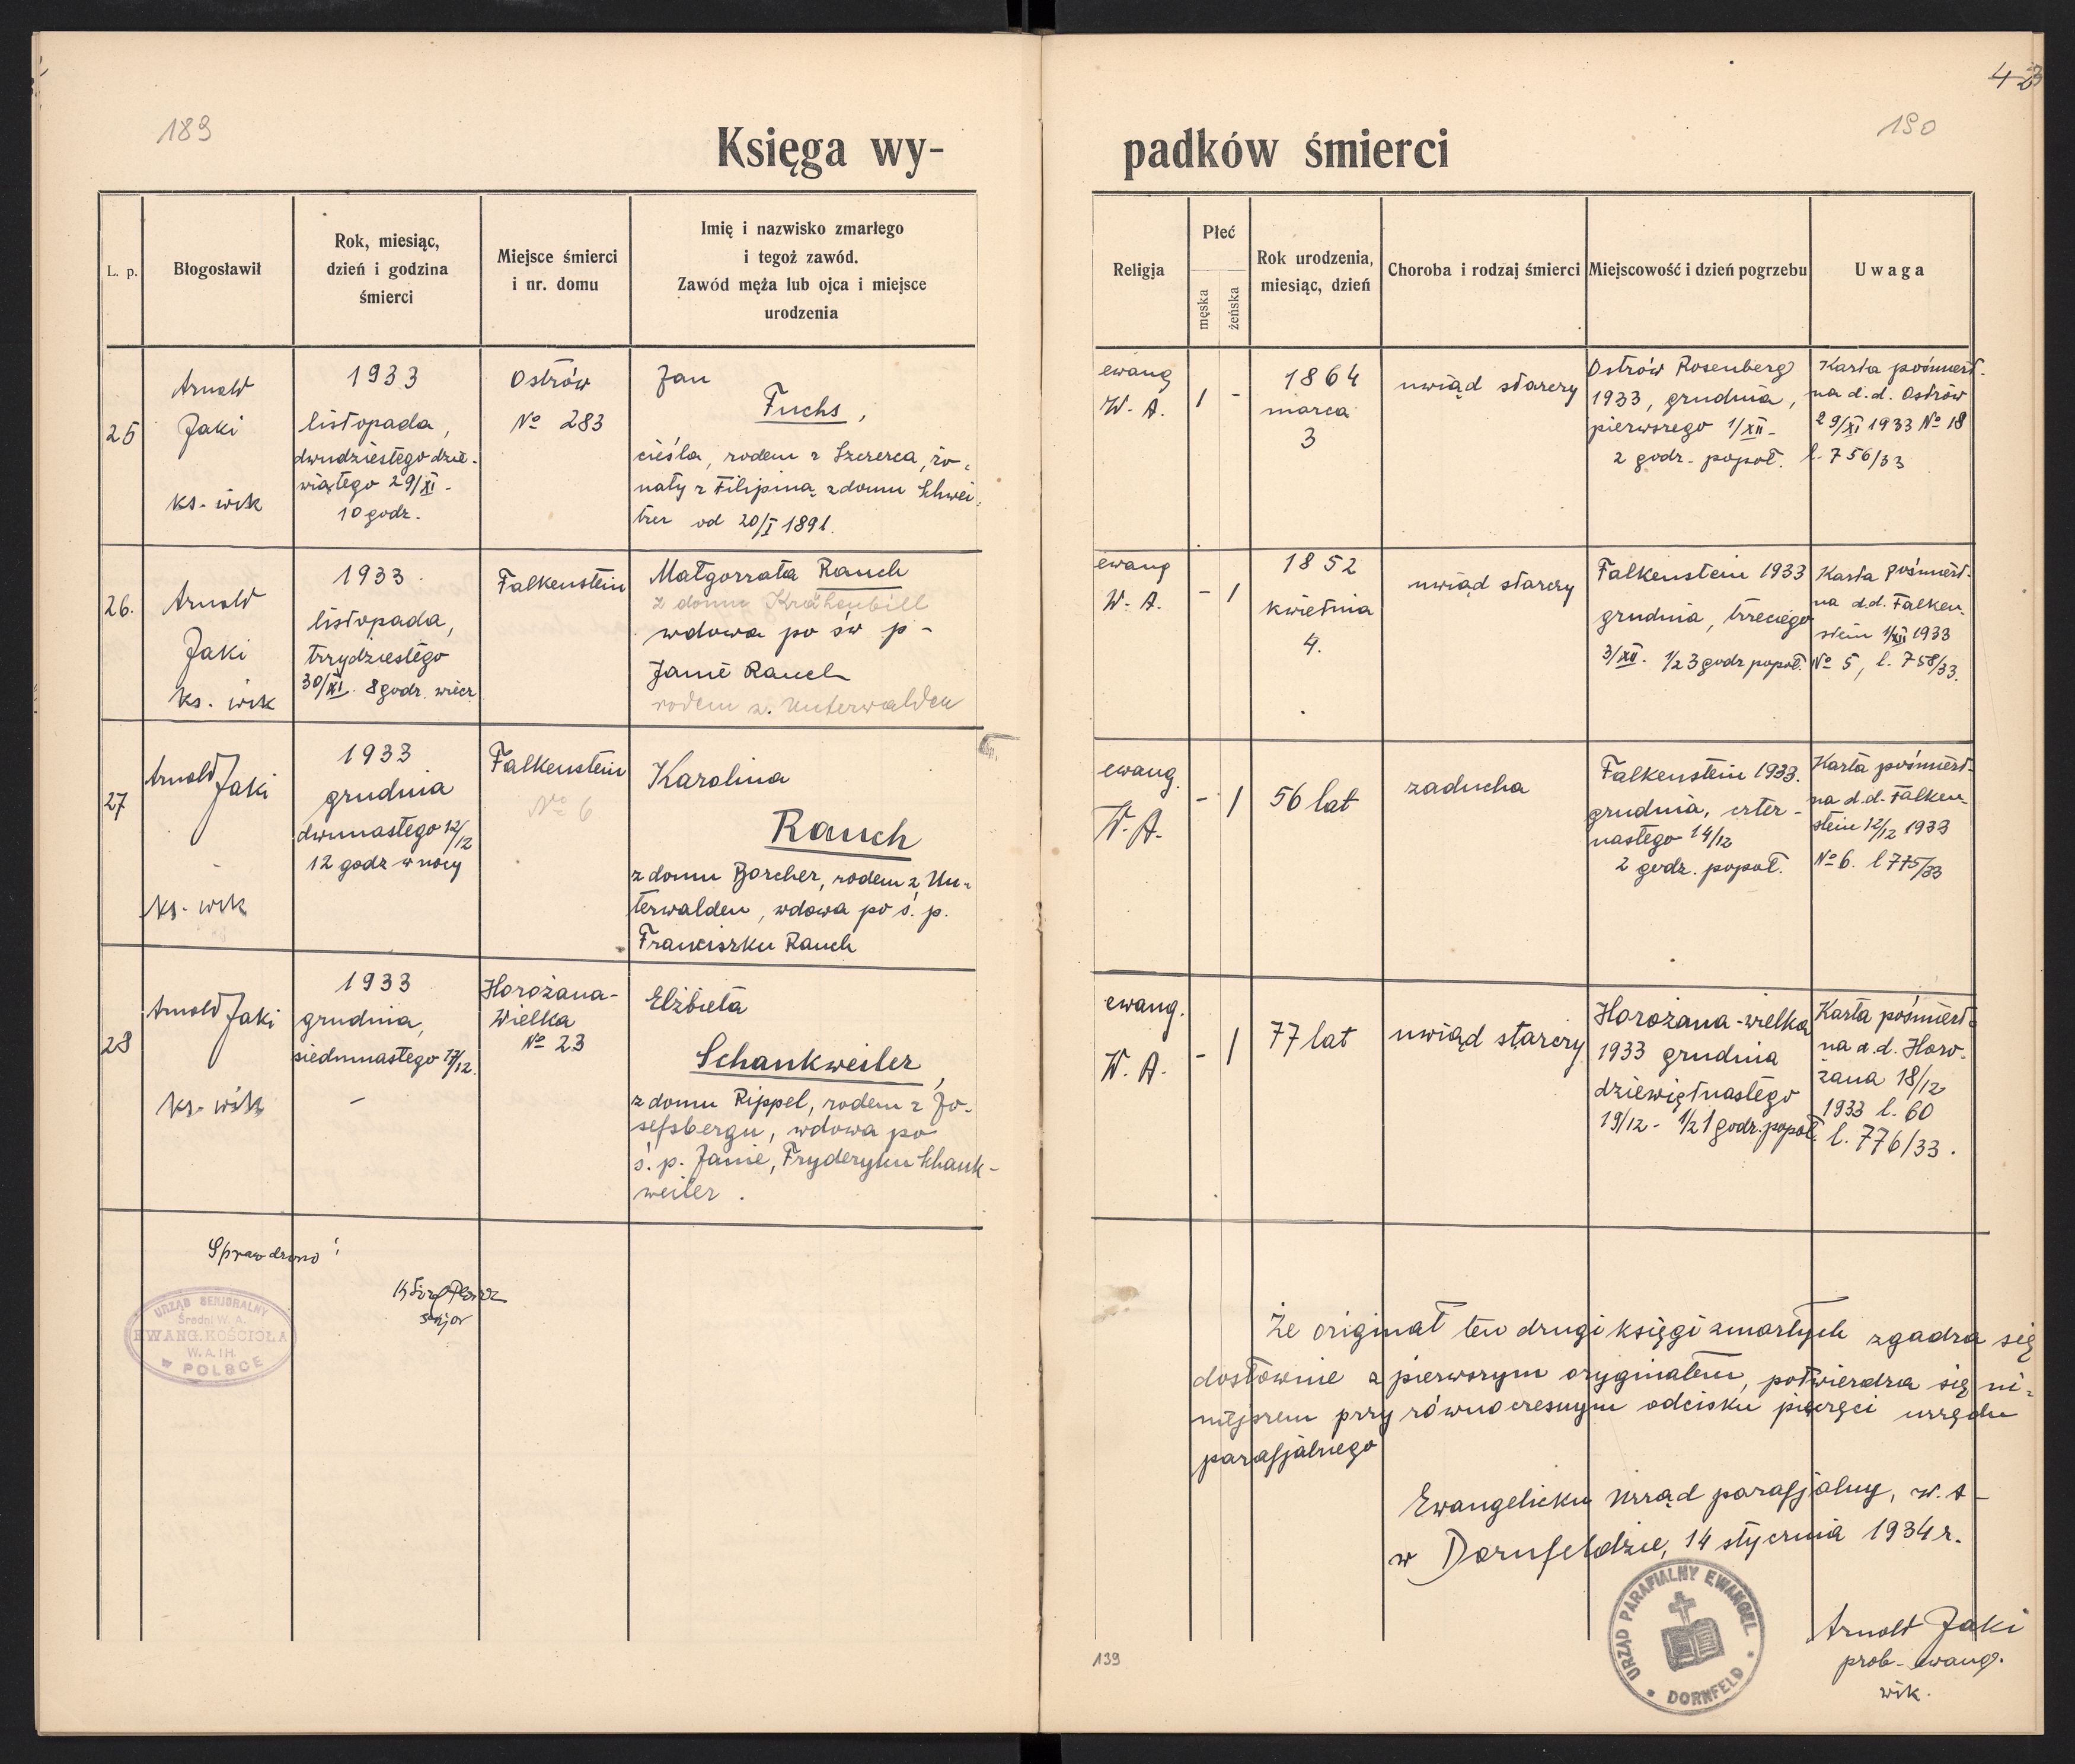 189
Księga wy-
L. p.
Błogosławił
Rok, miesiąc,
dzień i godzina
śmierci
Miejsce śmierci
i nr. domu
Imię i nazwisko zmarłego
i tegoż zawód.
Zawód męża lub ojca i miejsce
urodzenia
25
Arnold
Jaki
ks. wik
1933
listopada,
dwudziestego dzie-
wiątego 29/XI -
10 godz.
Ostrów
No 283
Jan
Fuchs,
cieśla, rodem z Szczerca, żo-
naty z Filipiną z domu Schwei-
tzer od 20/I 1891.
26.
Arnold
Jaki
ks. wik
1933
listopada,
trzydziestego
30/XI. 8 godz. wiecz
Falkenstein
Małgorzata Rauch
z domu Krähenbill
wdowa po św p-
Janie Rauch
rodem z. Unterwalden
27
Arnold Jaki
ks. wik
1933
grudnia
dwunastego 12/12
12 godz w nocy
Falkenstein
No 6
Karolina
Rauch
z domu Borcher, rodem z Un-
terwalden, wdowa po ś. p.
Franciszku Rauch
28
Arnold Jaki
ks. wik
1933
grudnia,
siedmnastego 17/12.
-
Horożana-
Wielka
No 23
Elżbieta
Schankweiler,
z domu Rippel, rodem z Jo-
sefsbergu, wdowa po
ś. p. Janie, Fryderyku Schank-
weiler.
Sprawdzono:
senjor
URZĄD SENJORALNY
Średni W. A.
EWANG. KOŚCIOŁA
W. A. I H.
w POLSCE
423
190
padków śmierci
Religja
Płeć
męska
żeńska
Rok urodzenia,
miesiąc, dzień
Choroba i rodzaj śmierci
Miejscowość i dzień pogrzebu
Uwaga
ewang
W. A.
1 -
1864
marca
3
uwiąd starczy
Ostrów Rosenberg
1933, grudnia,
pierwszego 1/XII -
2 godz - popoł.
Karta pośmiert-
na d.d. Ostrów
29/XI 1933 No 18
l. 756/33
ewang
W. A.
- 1
1852
kwietnia
4.
uwiąd starczy
Falkenstein 1933
grudnia, trzeciego
3/XII. 1/2 3 godz popoł.
Karta pośmiert-
na d.d. Falken-
stein 1/XII 1933
No 5, l. 758/33.
ewang.
W. A.
- 1
56 lat
zaducha
Falkenstein 1933.
grudnia, czter-
nastego 14/12
2 godz. popoł.
Karta pośmiert-
na d.d. Falken-
stein 12/12 1933
No 6. l 775/33
ewang.
W. A.
- 1
77 lat
uwiąd starczy
Horożana-wielka
1933 grudnia
dziewiętnastego
19/12 - 1/2 1 godz. popoł.
Karta pośmiert-
na d.d. Horo-
żana 18/12
1933 l. 60
l. 776/33.
Że originał ten drugi księgi zmarłych zgadza się
dosłownie z pierwszym oryginałem, potwierdza się ni-
niejszem przy równoczesnym odcisku pieczęci urzędu
parafjalnego
Ewangelicku Urząd parafjalny, w. A-
w Dornfeldzie, 14 stycznia 1934 r.
URZĄD PARAFIALNY EWANGEL
DORNFELD
Arnold Jaki
prob- ewang.
wik.
139